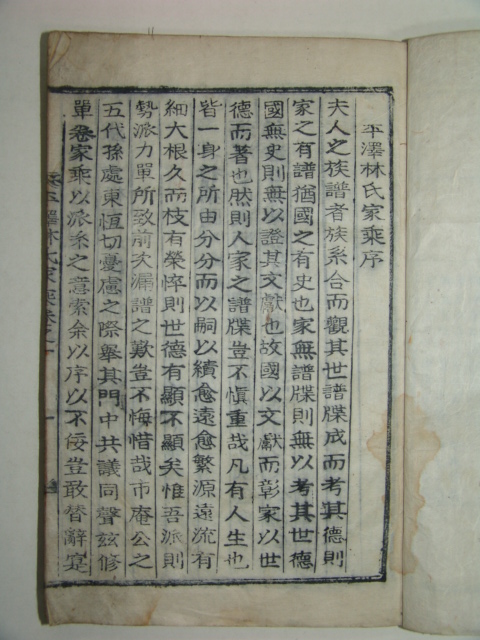 平澤林氏家乘序
夫人之族譜者族系合而觀其世譜牒成而考其德則
家之有譜猶國之有史也家無譜牒則無以考其世德
國無史則無以證其文獻也故國以文獻而彰家以世
德而著也然則人家之譜牒豈不愼重哉凡有人生也
皆一身之所由分分而以嗣以續愈遠愈繁源遠流有
細大根久而枝有榮悴則世德有顯不顯矣惟吾派則
勢派力單所致前次漏譜之歎豈不悔惜哉市庵公之
五代孫處東恆切憂慮之際擧其門中共議同聲玆修
單卷家乘以派系之意索余以序以不佞豈敢替辭寔
平澤林氏家乘卷之一